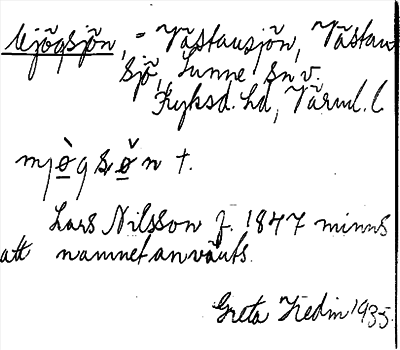 Mjögsjön, = Västansjön, Västan
sjö, Sunne Sn v.
Fryksd. hd, Värml. l
mjøgsøn †.
Lars Nilsson f. 1847 minns
att namnet använts.
Greta Hedin 1935